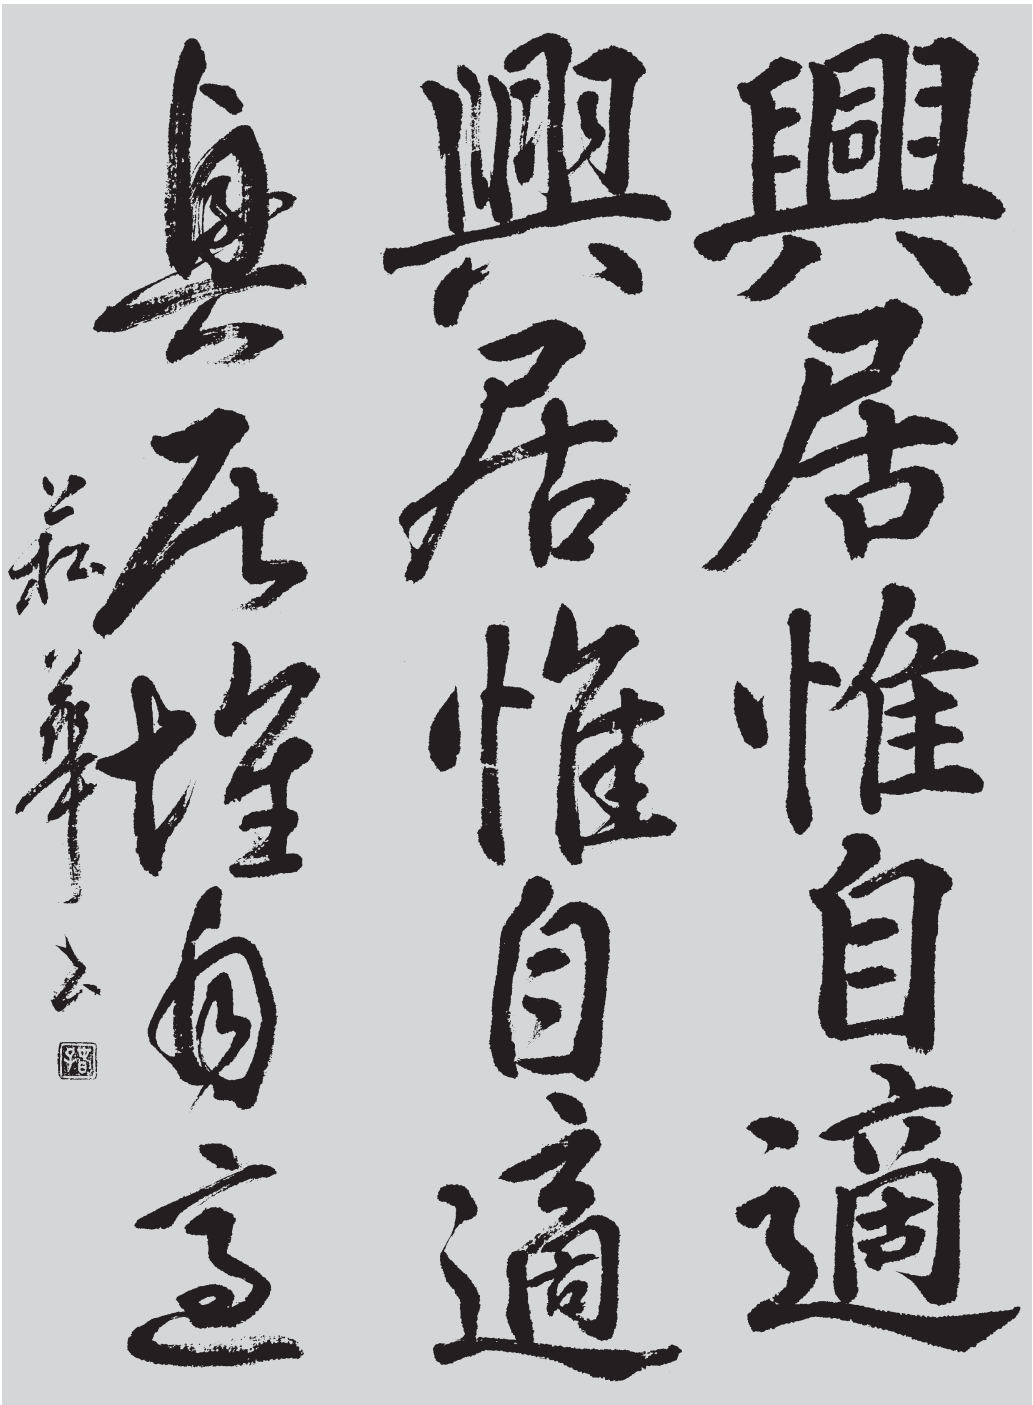 興居惟自適
興居惟自適
興居惟自適
菘華書